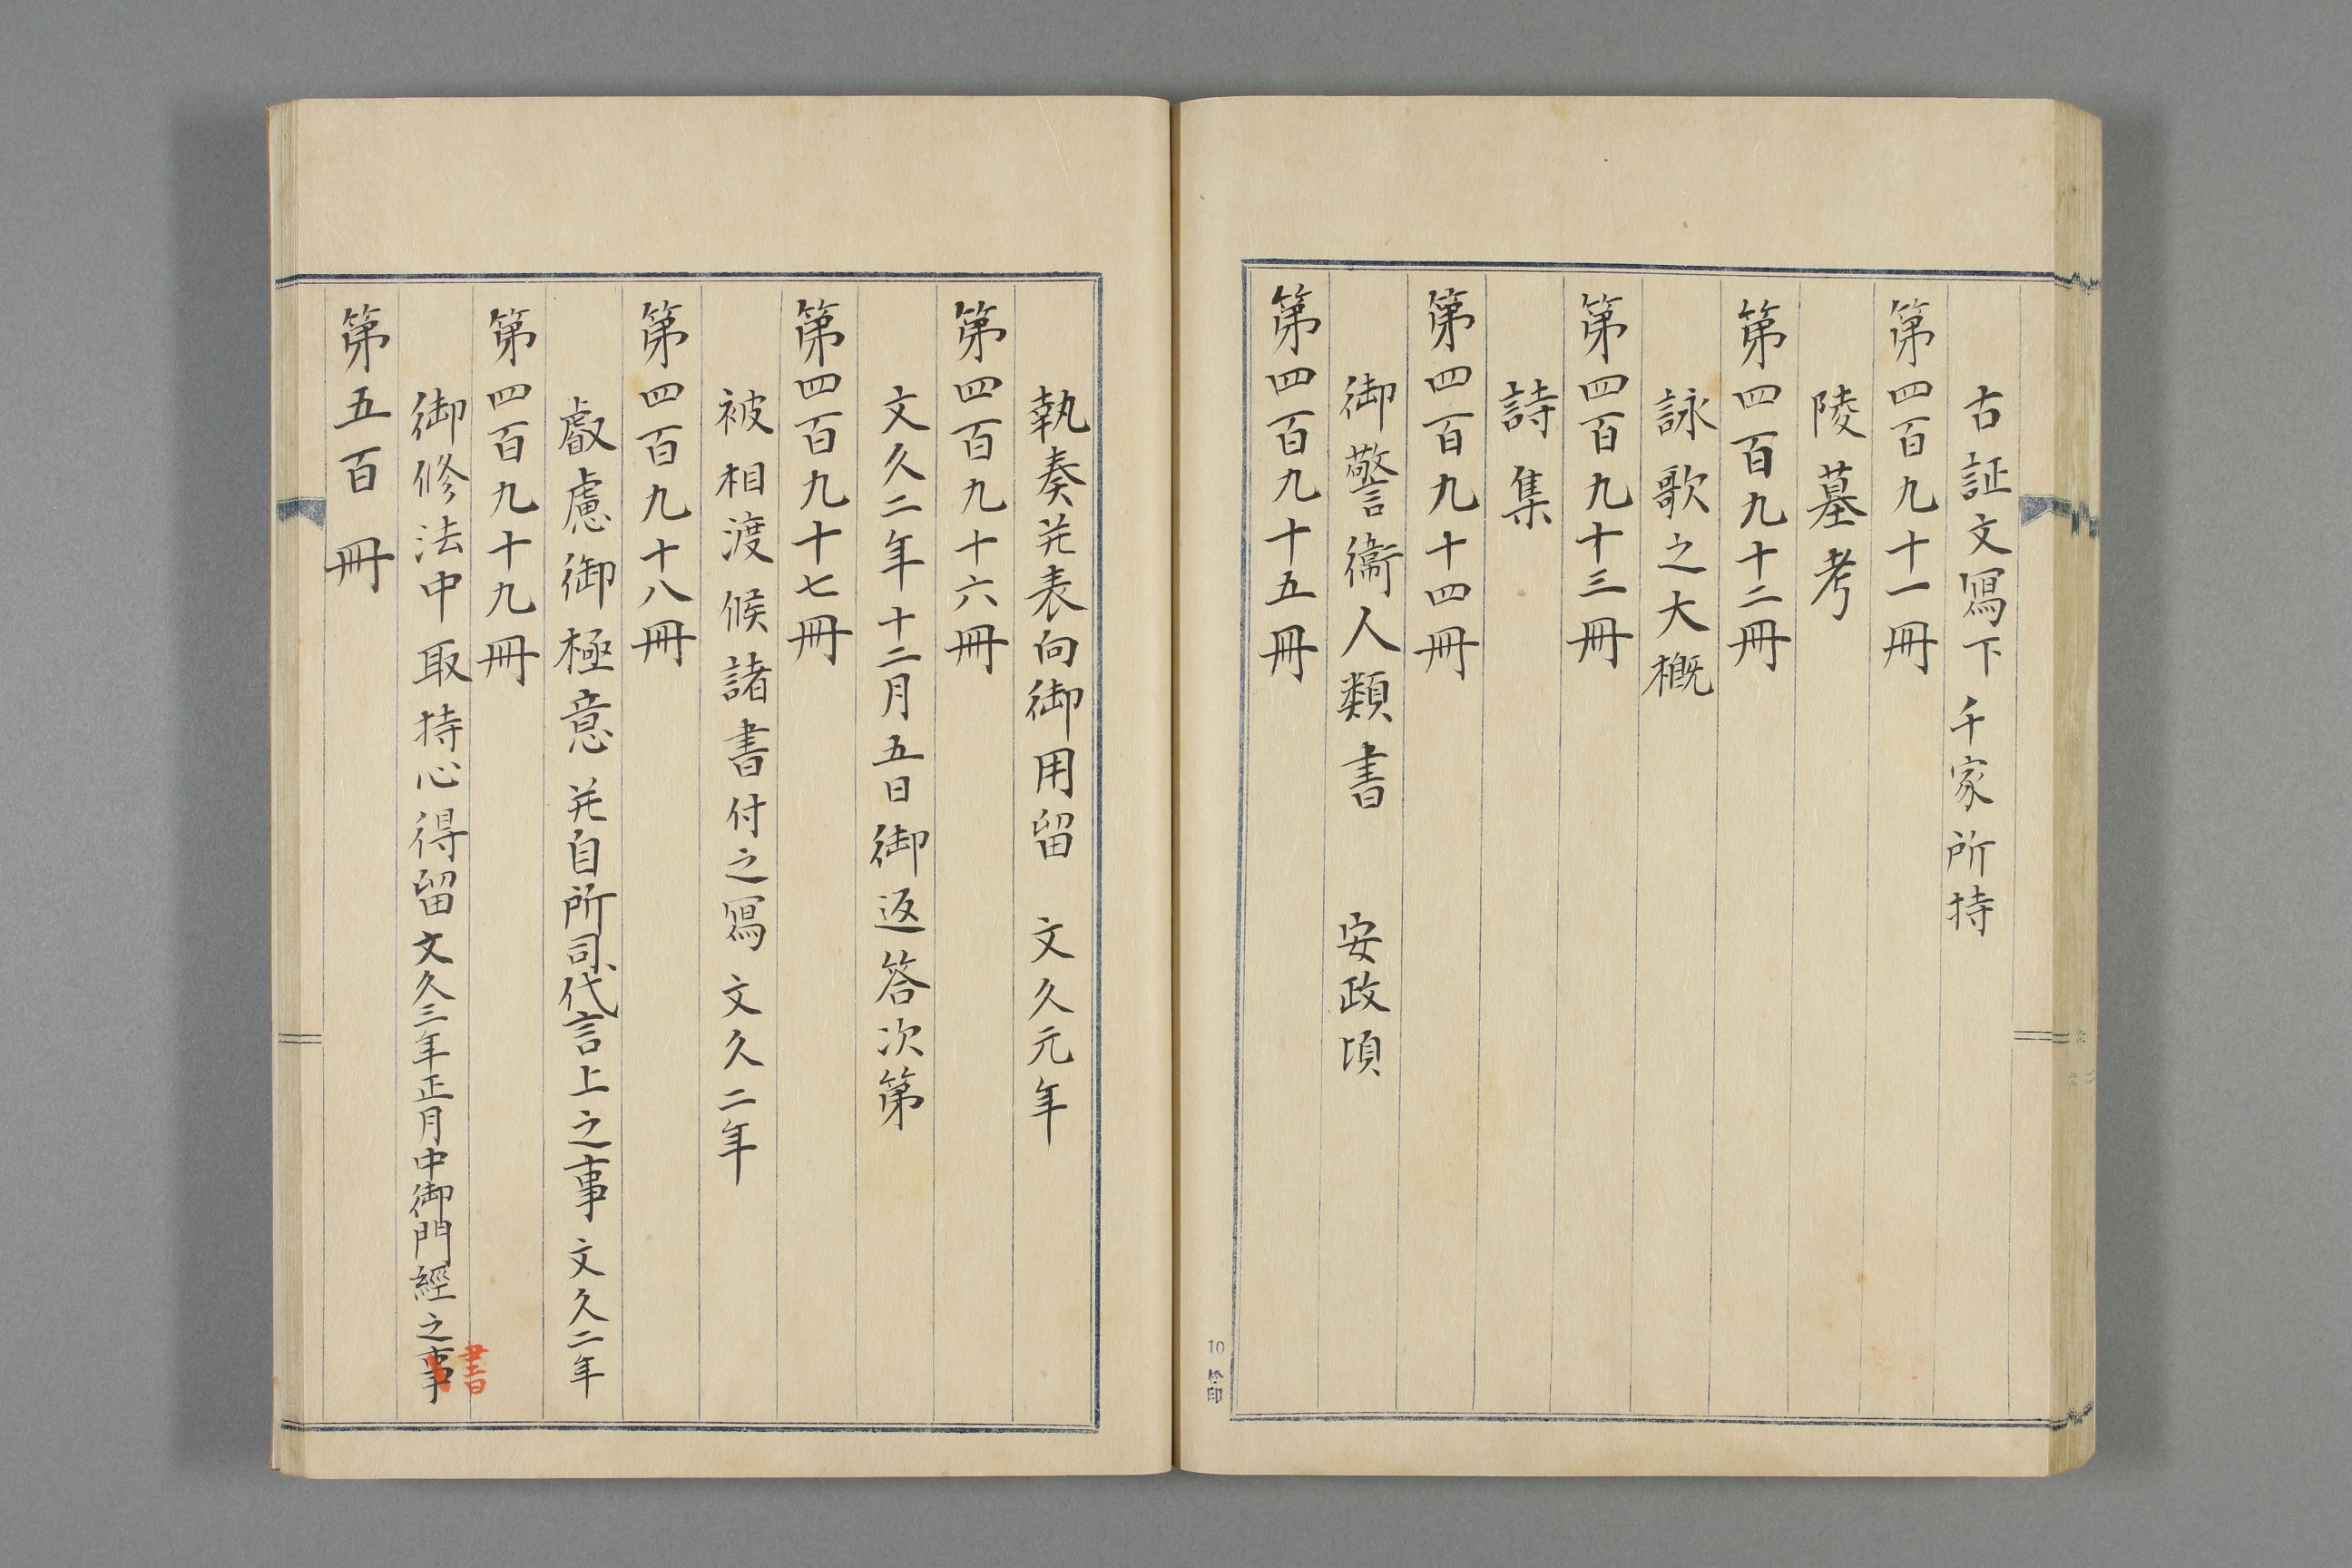 古証文寫下 千家所持
第四百九十一冊
陵墓考
第四百九十二冊
詠歌之大概
第四百九十三冊
詩集
第四百九十四冊
御警衞人類書 安政頃
第四百九十五冊
執奏并表向御用留 文久元年
第四百九十六冊
文久二年十二月五日御返答次第
第四百九十七冊
被相渡候諸書付之寫 文久二年
第四百九十八冊
叡慮御極意并自所司代言上之事 文久二年
第四百九十九冊
御修法中取持心得留文久三年正月中御門經之事
書
第五百冊
10